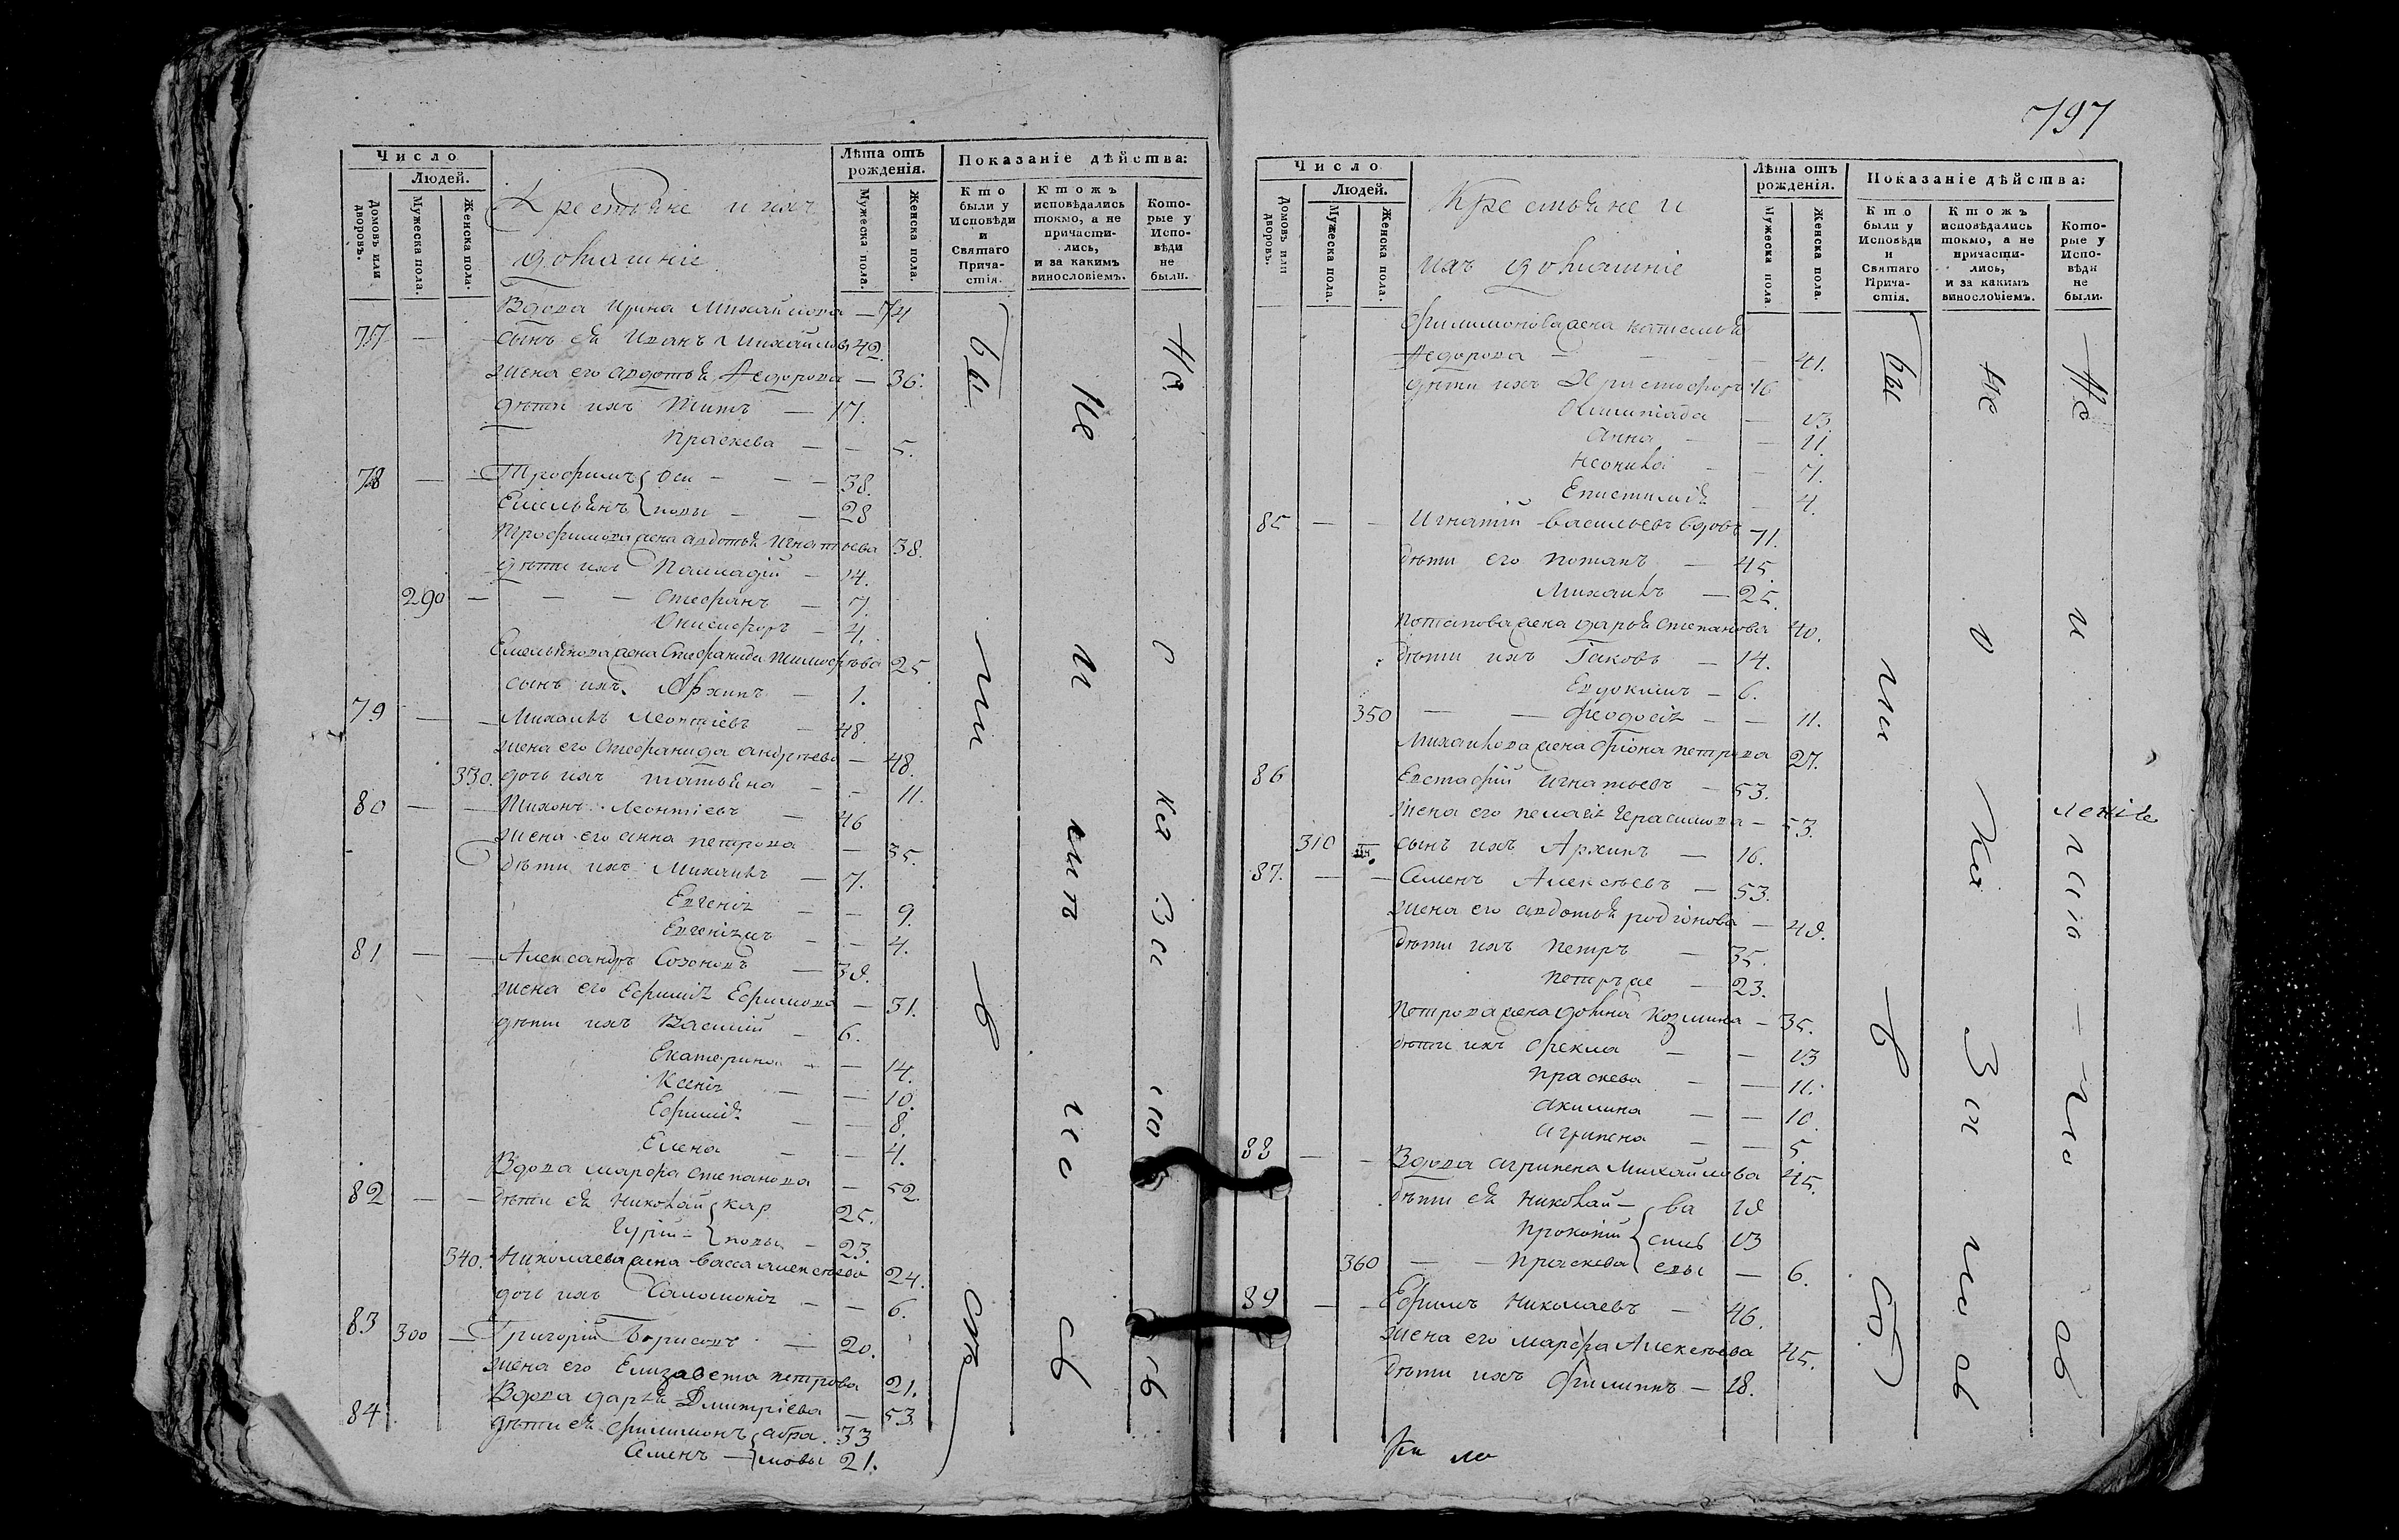 Число
Людей.
Домовъ или дворовъ.
Мужеска пола.
Женска пола.
Крестьяне и ихъ
домашніе
Лѣта отъ рожденія.
Мужеска пола.
Женска пола.
Показаніе дѣйства:
Кто были у Исповѣди и Святаго Прича-стія.
Ктожъ исповѣдались токмо, а не причасти-лись, и за какимъ винословіемъ.
Кото-рые у Испо-вѣди не были.
Вдова Ирина Михайлова — 74
77 — сынъ ея Иванъ Михайловъ 42.
жена его Авдотья Федорова — 36.
дѣти ихъ Титъ — 17.
Праскева — — 5.
78 — — Трофимъ Оси — — 38.
Емельянъ повы — — 28
Трофимова жена Авдотья Игнатьева 38.
дѣти ихъ Палладій — 14.
290 — — — Стефанъ — 7.
Онисифоръ — 4.
Емельянова жена Стефанида Тимофѣева 25.
сынъ ихъ Архипъ — 1.
79 — — Михаилъ Леонтіевъ — 48.
жена его Стефанида Андрѣева — 48.
330. дочь ихъ Татьяна — — 11.
80 — — Тихонъ Леонтіевъ — 46
жена его Анна Петрова — 35.
дѣти ихъ Михаилъ — 7.
Евгенія — — 9.
— — 4.
81 — — Александръ Созоновъ — 38.
жена его Ефимія Ефимова — 31.
дѣти ихъ Василій — 6.
Екатерина — — 14.
Ксенія — — 10.
Ефимія — — 8.
Елена — — 4.
Вдова Марфа Степанова — 52.
82 — — дѣти ея Николай кар 25.
Гурій — повы — 23.
340. Николаева жена Васса Алексѣева 24.
дочь ихъ Саломонія — — 6.
83 300 — Григорій Борисовъ — 20.
жена его Елизавета Петрова 21.
Вдова Дарья Дмитріева — 53
84 дѣти ея Филимонъ Абра 33
Семенъ — мовы 21.
бы ли в
Не
797
Число
Людей.
Домовъ или дворовъ.
Мужеска пола.
Женска пола.
Крестьяне и
ихъ домашніе
Лѣта отъ рожденія.
Мужеска пола.
Женска пола.
Показаніе дѣйства:
Кто были у Исповѣди и Святаго Прича-стія.
Ктожъ исповѣдались токмо, а не причасти-лись, и за какимъ винословіемъ.
Кото-рые у Испо-вѣди не были.
Филимонова жена Наталья
Федорова — — — — 41.
дѣти ихъ Христофоръ 16
Олимпіада — 13.
Анна — — 11.
Неонила — — 7.
Епистимія — 4.
85 — — Игнатій Васильевъ вдовъ 71.
дѣти его Потапъ — 45.
Михаилъ — 25.
Потапова жена Дарья Степанова 40.
дѣти ихъ Іаковъ — 14.
Евдокимъ — 6.
350 — — Феодосія — — 11.
Михайлова жена Фіона Петрова 27.
86 Евстафій Игнатьевъ — 53.
жена его Пелагія Герасимова — 53.
310 сынъ ихъ Архипъ — 16.
87. — — Семенъ Алексѣевъ — 53.
жена его Авдотья Родіонова — 48.
дѣти ихъ Петръ — 35.
Петръ же — 23.
Петрова жена Домна Козмина — 35.
дѣти ихъ Фекла — — 13
Праскева — — 11.
Акилина — — 10.
Агрипена — — 5.
88 — — Вдова Агрипена Михайлова 45.
дѣти ея Николай — ва 18
Прокопій силь 13
360 — — Праскева евы — 6.
89 — — Ефимъ Николаевъ — 46.
жена его Марфа Алексѣева 45.
дѣти ихъ Филипъ — 18.
бы ли в
Не